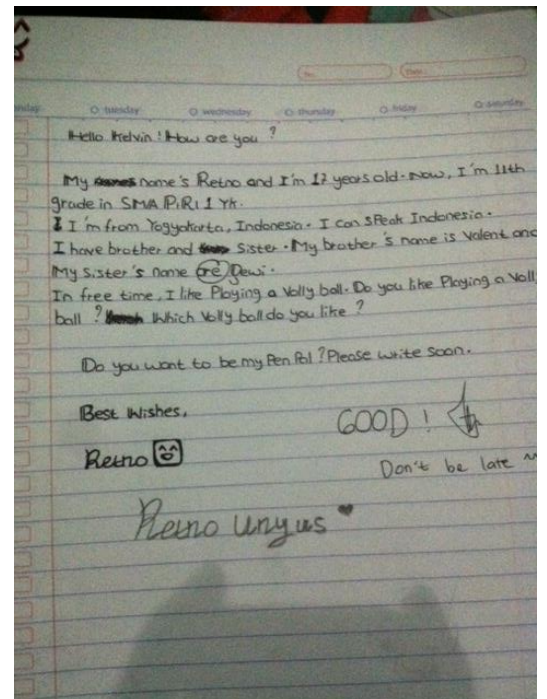 tuesday wednesday thursday friday saturday
Hello Kelvin! How are you?
My name's Retno and I'm 17 years old. Now, I'm 11th
grade in SMA PiRi 1 Yk.
I'm from Yogyakarta, Indonesia. I can speak Indonesia.
I have brother and sister. My brother's name is Valent and
My sister's name are Dewi.
In free time, I like Playing a Volly ball. Do you like Playing a Volly
ball? Which Volly ball do you like?
Do you want to be my Pen Pal? Please write soon.
Best Wishes,
GOOD!
Retno
Don't be late ^^
Retno Unyus